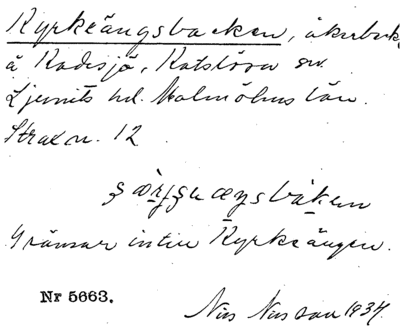 Kyrkeängsbacken, åkerback
å Kadesjö, Katslösa sn.
Ljunits hd. Malmöhus län.
Strax n. 12
Gränsar intill Kyrkeängen.
Nr 5663.
Nils Nilsson 1934